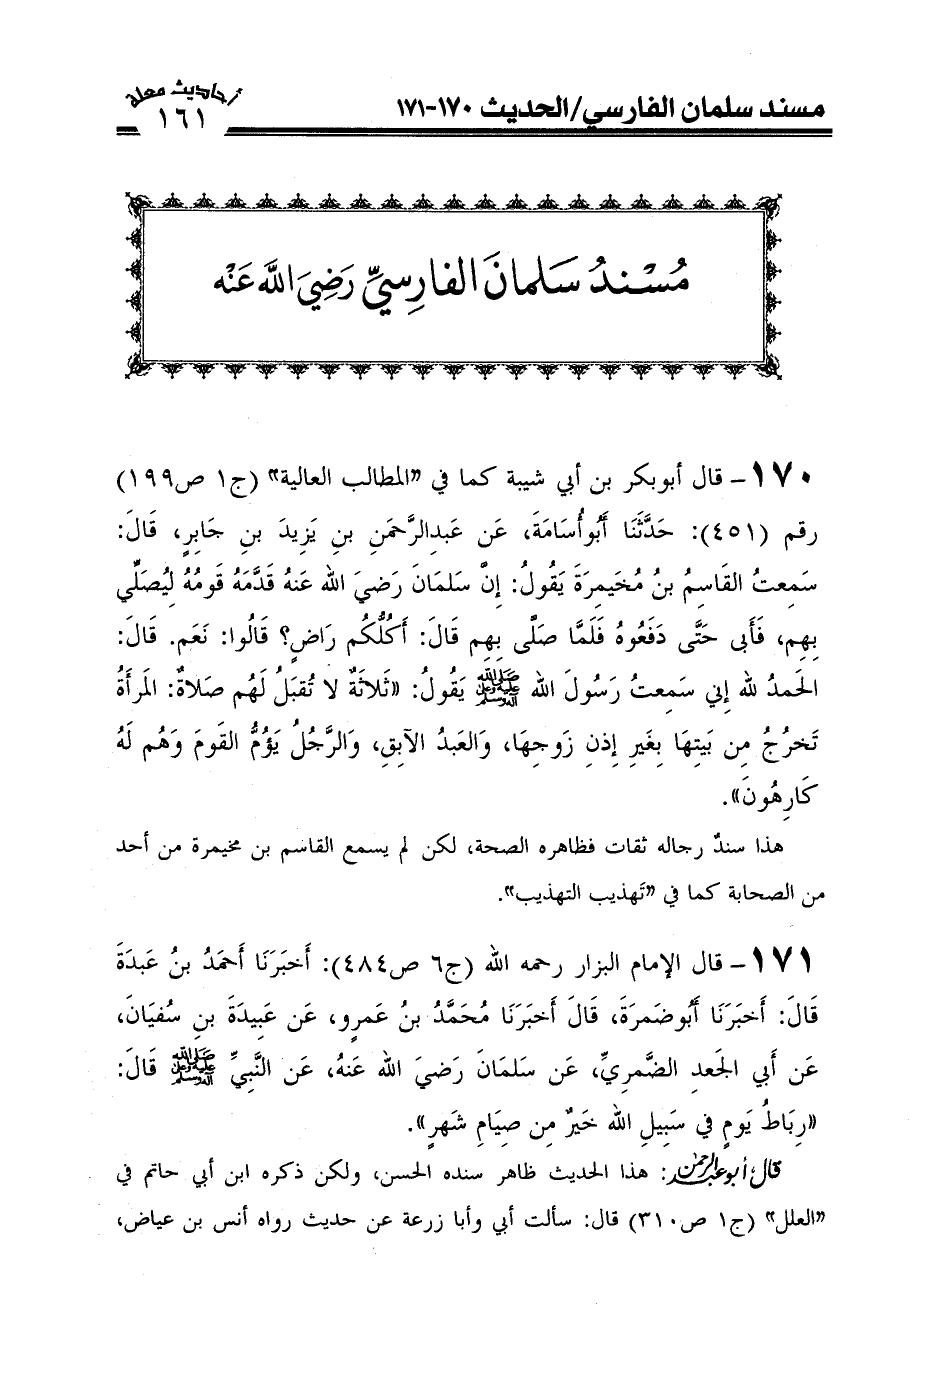 مسند سلمان الفارسي/الحديث ١٧٠-١٧١
أحاديث معلة
١٦١
مُسْنَدُ سَلمانَ الفارِسيِّ رَضِيَ اللَّه عَنْه
١٧٠- قال أبوبكر بن أبي شيبة كما في «المطالب العالية» (ج١ ص١٩٩)
رقم (٤٥١): حَدَّثَنَا أَبُوأُسَامَةَ، عَن عَبدِالرَّحمَنِ بنِ يَزِيدَ بنِ جَابِرٍ، قَالَ:
سَمِعتُ القَاسِمُ بنُ مُخَيمِرَةَ يَقُولُ: إِنَّ سَلمَانَ رَضِيَ الله عَنهُ قَدَّمَهُ قَومُهُ لِيُصَلِّي
بِهِم، فَأَبى حَتَّى دَفَعُوهُ فَلَمَّا صَلَّى بِهِم قَالَ: أَكُلُّكُم رَاضٍ؟ قَالُوا: نَعَم. قَالَ:
الحَمدُ لله إِني سَمِعتُ رَسُولَ الله ﷺ يَقُولُ: «ثَلاَثَةٌ لا تُقبَلُ لَهُم صَلاَةٌ: المَرأَةُ
تَخرُجُ مِن بَيتِهَا بِغَيرِ إِذنِ زَوجِهَا، وَالعَبدُ الآبِق، وَالرَّجُلُ يَؤُمُّ القَومَ وَهُم لَهُ
كَارِهُونَ».
هذا سندٌ رجاله ثقات فظاهره الصحة، لكن لم يسمع القاسم بن مخيمرة من أحد
من الصحابة كما في «تَهذيب التهذيب».
١٧١- قال الإمام البزار رحمه الله (ج٦ ص٤٨٤): أَخبَرَنَا أَحمَدُ بنُ عَبدَةَ
قَالَ: أَخبَرَنَا أَبُوضَمرَةَ، قَالَ أَخبَرَنَا مُحَمَّدُ بنُ عَمرٍو، عَن عَبِيدَةَ بنِ سُفيَانَ،
عَن أَبي الجَعدِ الضَّمرِيِّ، عَن سَلمَانَ رَضِيَ الله عَنهُ، عَن النَّبِيِّ ﷺ قَالَ:
«رِبَاطُ يَومٍ في سَبِيلِ الله خَيرٌ مِن صِيَامِ شَهرٍ».
قال أبوعبدالرحمن: هذا الحديث ظاهر سنده الحسن، ولكن ذكره ابن أبي حاتم في
«العلل» (ج١ ص٣١٠) قال: سألت أبي وأبا زرعة عن حديث رواه أنس بن عياض،